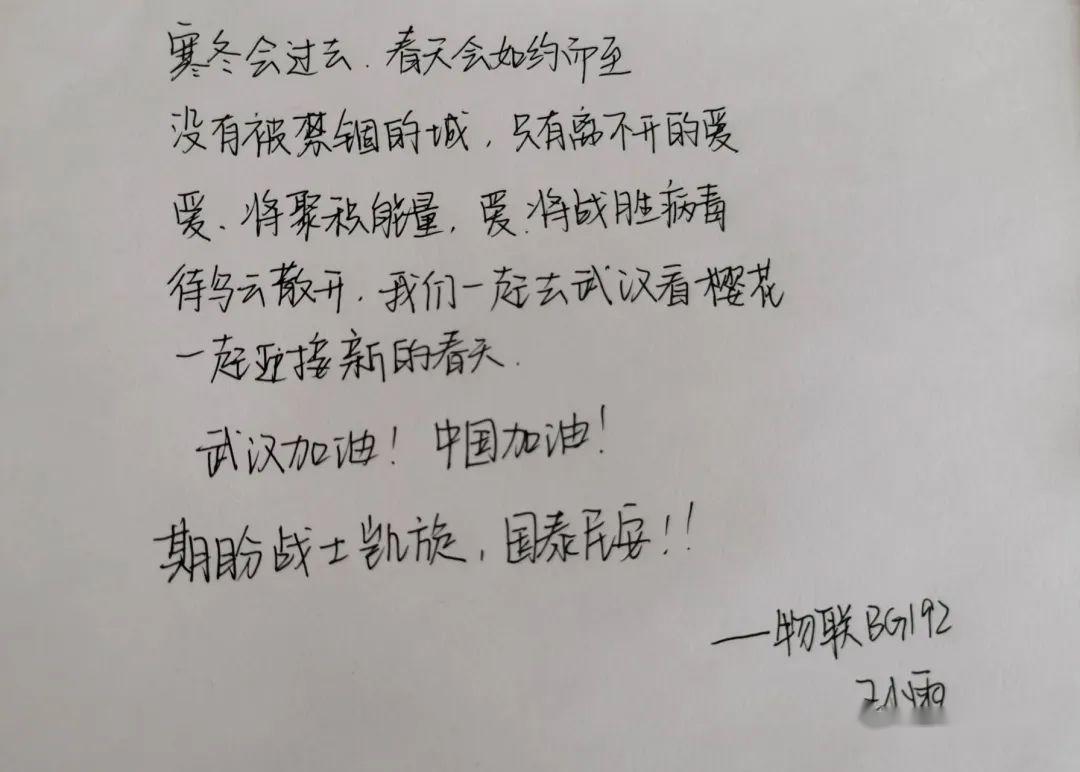 寒冬会过去.春天会如约而至
没有被禁锢的城,只有离不开的爱
爱、将聚积能量,爱.将战胜病毒
待乌云散开,我们一起去武汉看樱花
一起迎接新的春天.
武汉加油!中国加油!
期盼战士凯旋,国泰民安!!
——物联BG192